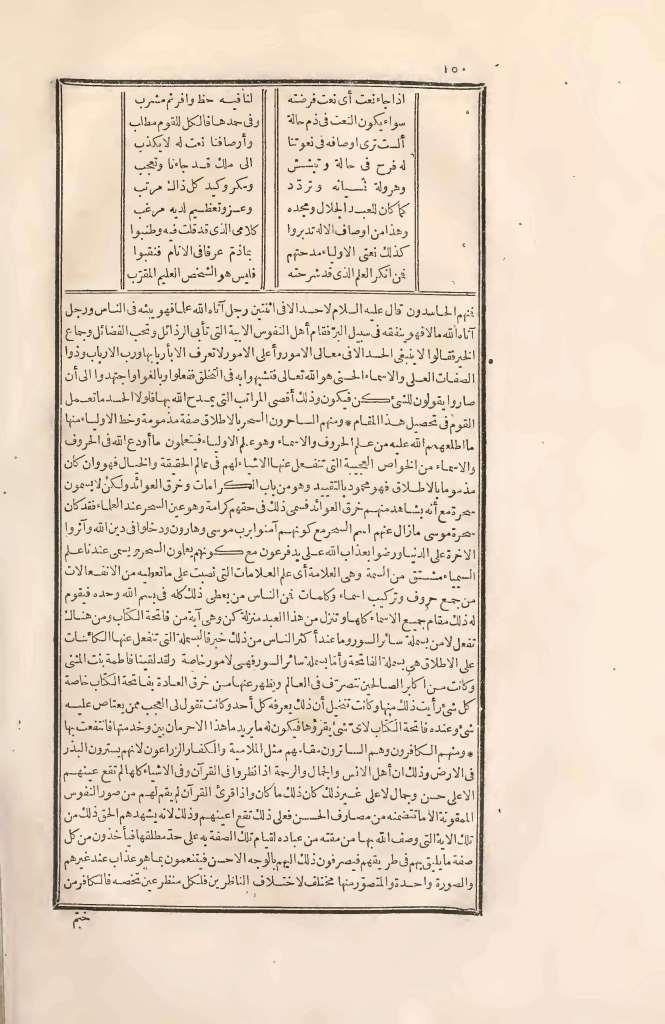 ١٥٠
اذا جاء نعت أى نعت فرضته لنا فيه حظ وافر ثم مشرب
سواء يكون النعت فى ذم حالة وفى حمدها فالكل للقوم مطلب
ألست ترى اوصافه فى نعوتنا وأوصافنا نعت له لا يكذب
له فرح فى حالة وتبشش الى ملك قد جاءنا وتعجب
وهرولة نسيانه وتردد ومكر وكيد كل ذاك مرتب
كما كان للعبد الجلال ومجده وعز وتعظيم لديه مرغب
وهذا من اوصاف الاله تدبروا كلامى الذى قد قلت فيه وطنبوا
كذلك نعتى الاولياء مدحتهم بما ذم عرفا فى الانام فنقبوا
فمن أنكر العلم الذى قد شرحته فليس هو الشخص العليم المقرب
فمنهم الحاسدون قال عليه السلام لا حسد الا فى اثنتين رجل آتاه الله علما فهو يبثه فى الناس ورجل
آتاه الله مالا فهو ينفقه فى سبيل البر فقام أهل النفوس الابية التى تأبى الرذائل وتحب الفضائل وجماع
الخير فقالوا لا ينبغى الحسد الا فى معالى الامور وأعلى الامور لا تعرف الا بأربابها ورب الارباب وذوا
الصفات العلى والاسماء الحسنى هو الله تعالى فتشبهوا به فى التخلق ففعلوا وبالغوا واجتهدوا الى أن
صاروا يقولون للشئ كن فيكون وذلك أقصى المراتب التى يمدح الله بها فلولا الحسد ما تعمل
القوم فى تحصيل هذا المقام * ومنهم الساحرون السحر بالاطلاق صفة مذمومة وحظ الاولياء منها
ما اطلعهم الله عليه من علم الحروف والاسماء وهو علم الاولياء فيتعلمون ما أودع الله فى الحروف
والاسماء من الخواص العجيبة التى تنفعل عنها الاشياء لهم فى عالم الحقيقة والخيال فهو وان كان
مذموما بالاطلاق فهو محمود بالتقييد وهو من باب الكرامات وخرق العوائد ولكن لا يسمون
سحرة مع أنه يشاهد منهم خرق العوائد فسمى ذلك فى حقهم كرامة وهو عين السحر عند العلماء فقد كان
سحرة موسى مازال عنهم اسم السحر مع كونهم آمنوا برب موسى وهارون ودخلوا فى دين الله وآثروا
الاخرة على الدنيا ورضوا بعذاب الله على يد فرعون مع كونهم يعلون السحر ويسمى عندنا علم
السيمياء مشتق من السمة وهى العلامة أى علم العلامات التى نصبت على ما تعطيه من الانفعالات
من جمع حروف وتركيب اسماء وكلمات فمن الناس من يعطى ذلك كله فى بسم الله وحده فيقوم
له ذلك مقام جميع الاسماء كلها وتنزل من هذا العبد منزلة كن وهى آية من فاتحة الكتاب ومن هناك
تفعل لا من بسملة سائر السور وما عند أكثر الناس من ذلك خبر فالبسملة التى تنفعل عنها الكائنات
على الاطلاق هى بسملة الفاتحة وأما بسملة سائر السور فهى لامور خاصة ولقد لقينا فاطمة بنت المثنى
وكانت من اكابر الصالحين تتصرف فى العالم ويظهر عنها من خرق العادة بفاتحة الكتاب خاصة
كل شئ رأيت ذلك منها وكانت تتخيل أن ذلك يعرفه كل أحد وكانت تقول لى العجب ممن يعتاص عليه
شئ وعنده فاتحة الكتاب لاى شئ يقرؤها فيكون له ما يريد ما هذا الا حرمان بين وخدمتها فانتفعت بها
* ومنهم الكافرون وهم الساترون مقامهم مثل الملامية والكفار الزراعون لانهم يسترون البذر
فى الارض وذلك ان أهل الانس والجمال والرحمة اذا نظروا فى القرآن وفى الاشياء كلها لم تقع عينهم
الا على حسن وجمال لا على غير ذلك كان ذلك ما كان واذا قرئ القرآن لم يقم لهم من صور النفوس
الممقوتة الا ما تتضمنه من مصارف الحسن فعلى ذلك تقع اعينهم وذلك لانه يشهدهم الحق ذلك من
تلك الاية التى وصف الله بها من مقته من عباده لقيام تلك الصفة به على حد مطلقها فيأخذون من كل
صفة ما يليق بهم فى طريقهم فيصرفون ذلك اليهم بالوجه الاحسن فيتنعمون بما هو عذاب عند غيرهم
والصورة واحدة والمتصور منها مختلف لاختلاف الناظرين فلكل منظر عين تخصه فالكافر من
ختم